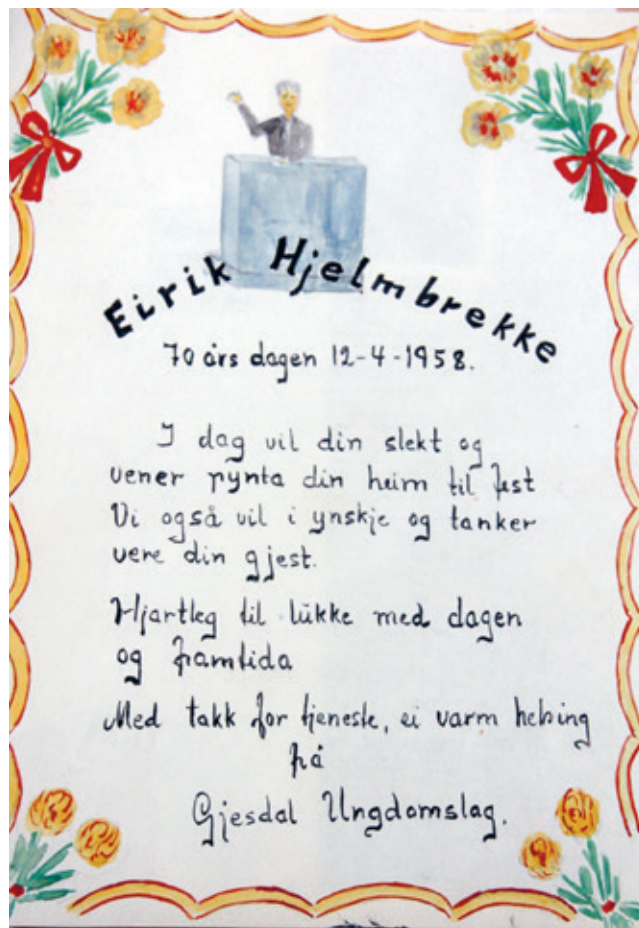 Eirik Hjelmbrekke
70 års dagen 12-4-1958.
I dag vil din slekt og
vener pynta din heim til fest
Vi også vil i ynskje og tanker
vere din gjest.
Hjartleg til lukke med dagen
og framtida
Med takk for tjeneste, ei varm helsing
frå
Gjesdal Ungdomslag.